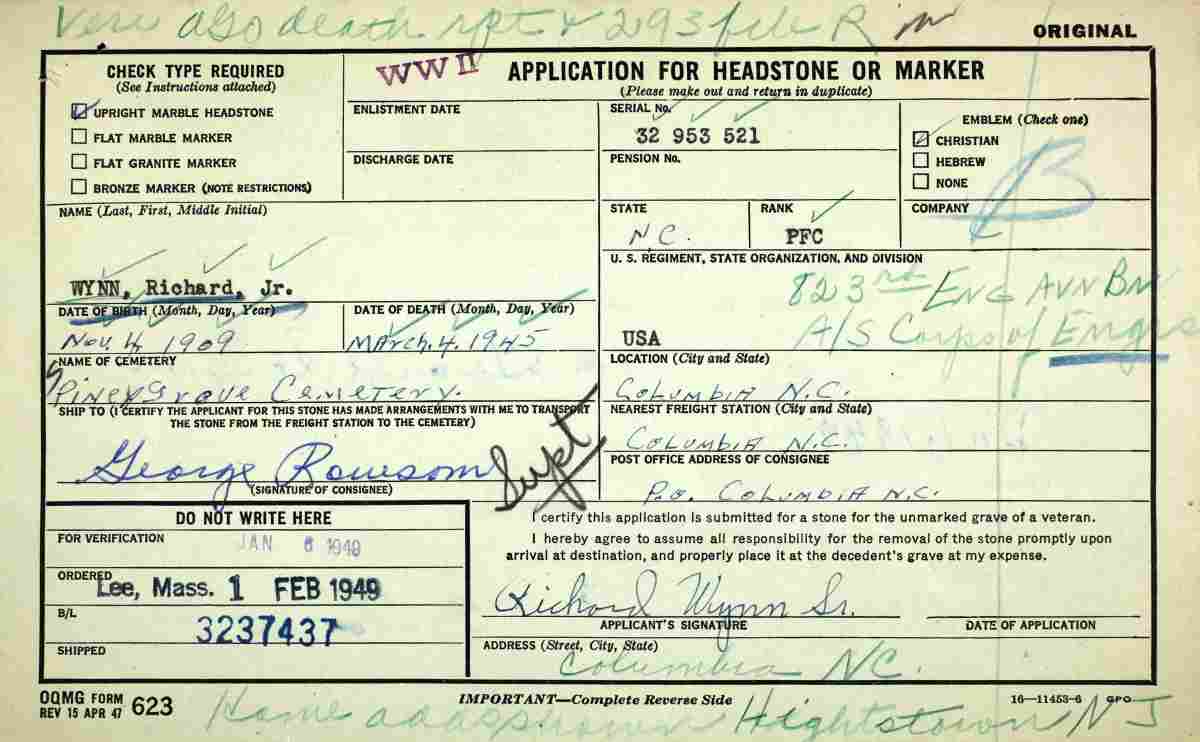 Veri also death rpt & 293 file R
ORIGINAL
CHECK TYPE REQUIRED
(See Instructions attached)
UPRIGHT MARBLE HEADSTONE
FLAT MARBLE MARKER
FLAT GRANITE MARKER
BRONZE MARKER (NOTE RESTRICTIONS)
WW II
APPLICATION FOR HEADSTONE OR MARKER
(Please make out and return in duplicate)
ENLISTMENT DATE
DISCHARGE DATE
SERIAL No.
32 953 521
PENSION No.
EMBLEM (Check one)
CHRISTIAN
HEBREW
NONE
B
NAME (Last, First, Middle Initial)
WYNN, Richard, Jr.
STATE
N.C.
RANK
PFC
COMPANY
U. S. REGIMENT, STATE ORGANIZATION, AND DIVISION
823rd Eng Avn Bn
USA
A/S Corps of Engrs
DATE OF BIRTH (Month, Day, Year)
Nov. 4, 1909
DATE OF DEATH (Month, Day, Year)
March. 4. 1945
NAME OF CEMETERY
Pineygrove Cemetery.
LOCATION (City and State)
Columbia N.C.
SHIP TO (I CERTIFY THE APPLICANT FOR THIS STONE HAS MADE ARRANGEMENTS WITH ME TO TRANSPORT
THE STONE FROM THE FREIGHT STATION TO THE CEMETERY)
George Rowsom Supt
(SIGNATURE OF CONSIGNEE)
NEAREST FREIGHT STATION (City and State)
Columbia N.C.
POST OFFICE ADDRESS OF CONSIGNEE
P.O. Columbia N.C.
DO NOT WRITE HERE
FOR VERIFICATION
JAN 6 1949
ORDERED
Lee, Mass. 1 FEB 1949
B/L
3237437
SHIPPED
I certify this application is submitted for a stone for the unmarked grave of a veteran.
I hereby agree to assume all responsibility for the removal of the stone promptly upon
arrival at destination, and properly place it at the decedent's grave at my expense.
Richard Wynn Sr.
APPLICANT'S SIGNATURE
DATE OF APPLICATION
ADDRESS (Street, City, State)
Columbia NC.
OQMG FORM
REV 15 APR 47
623
IMPORTANT—Complete Reverse Side
16—11453-6 GPO
Home add shown Hightstown N J